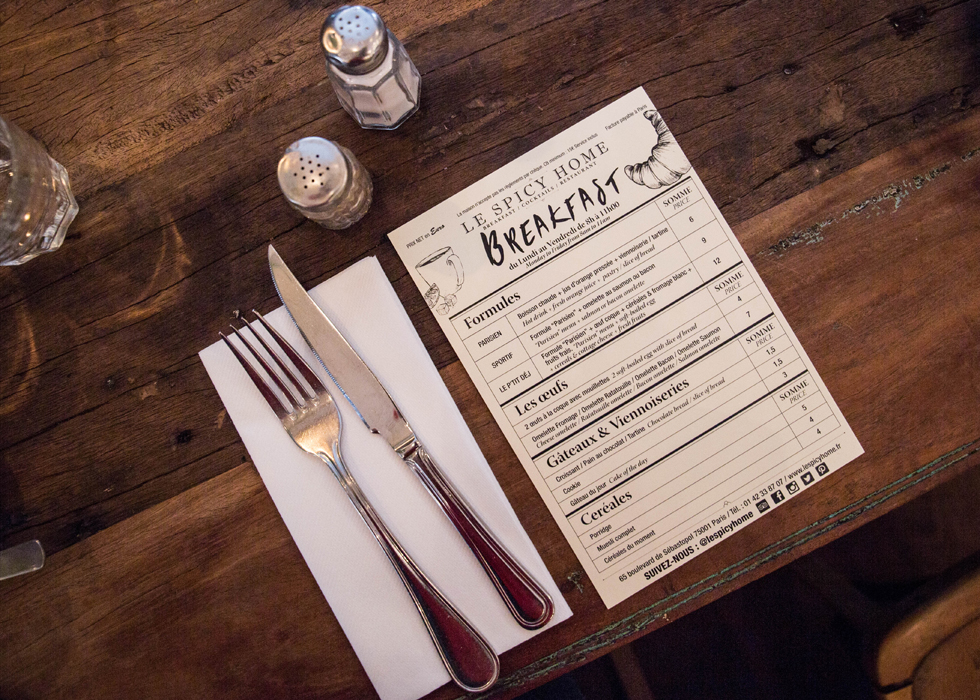 La maison n'accepte pas les règlements par chèque. CB minimum : 15€ Service inclus Facture payable à Paris
PRIX NET en Euro
LE SPICY HOME
BREAKFAST / COCKTAILS / RESTAURANT
BREAKFAST
du Lundi au Vendredi de 8h à 11h00
Monday to Friday from 8am to 11am
Formules SOMME
PRICE
PARISIEN Boisson chaude + jus d'orange pressée + viennoiserie / tartine 6
Hot drink + fresh orange juice + pastry / slice of bread
SPORTIF Formule "Parisien" + omelette au saumon ou bacon 9
"Parisien" menu + salmon or bacon omelette
LE P'TIT DÉJ Formule "Parisien" + œuf coque + céréales & fromage blanc + 12
fruits frais. "Parisien" menu + soft-boiled egg
+ cereals & cottage cheese + fresh fruits
Les œufs SOMME
PRICE
2 œufs à la coque avec mouillettes 2 soft-boiled egg with slice of bread 4
Omelette Fromage / Omelette Ratatouille / Omelette Bacon / Omelette Saumon 7
Cheese omelette / Ratatouille omelette / Bacon omelette / Salmon omelette
Gâteaux & Viennoiseries SOMME
PRICE
Croissant / Pain au chocolat / Tartine Chocolate bread / slice of bread 1,5
Cookie 1,5
Gâteau du jour Cake of the day 3
Ceréales SOMME
PRICE
Porridge 5
Muesli complet 4
Céréales du moment 4
65 boulevard de Sébastopol 75001 Paris / Tél. : 01 42 33 87 07 / www.lespicyhome.fr
SUIVEZ-NOUS : @lespicyhome